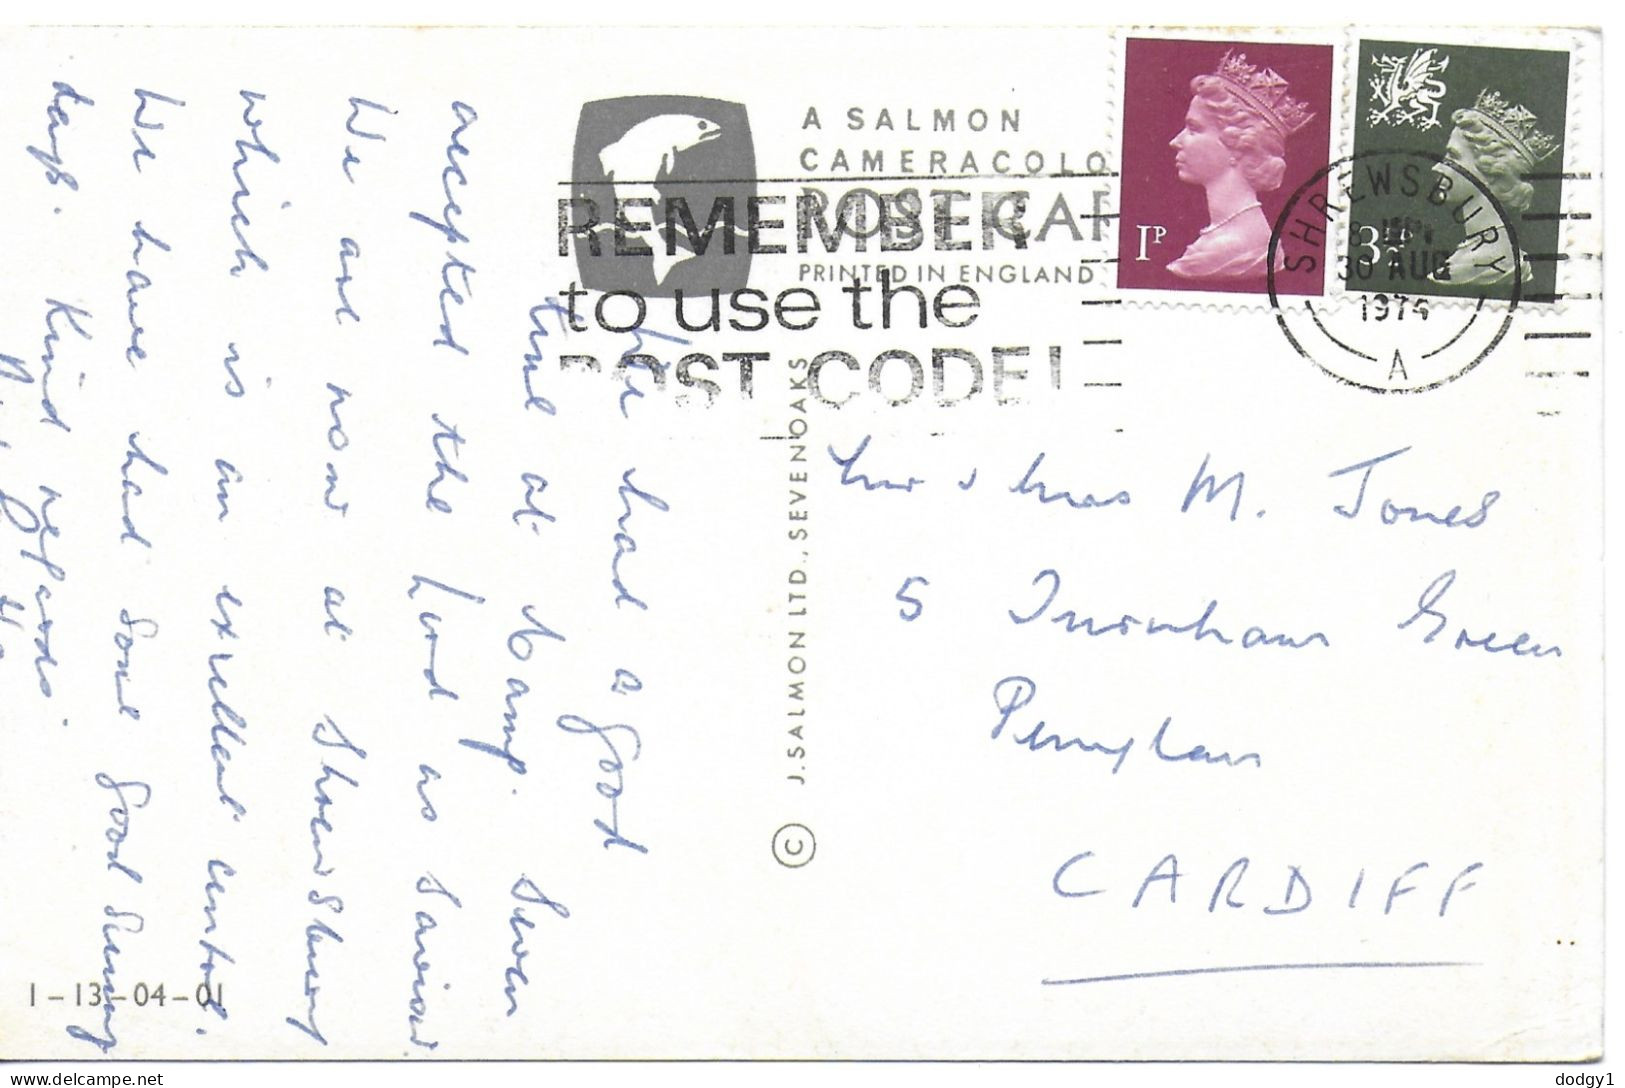 A SALMON
CAMERACOLO
POST CAR
PRINTED IN ENGLAND
REMEMBER
to use the
POST CODE!
1P
3
SHREWSBURY
30 AUG
1974
A
© J. SALMON LTD., SEVENOAKS
We had a good
time at Camp. Seven
accepted the Lord as Saviour
We are now at Shrewsbury
which is an excellent centre.
We have had some good sunny
days. Kind regards
Mr & Mrs M. Jones
5 Turnham Green
Penylan
CARDIFF
1-13-04-01
delcampe.net
dodgy1